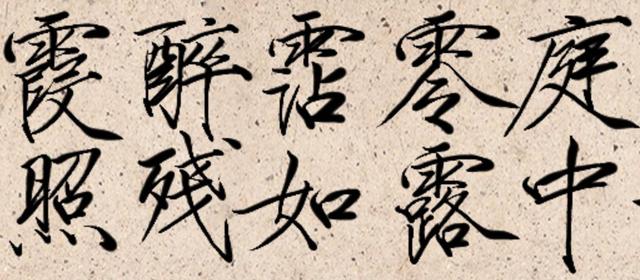 庭中
零露
霑如
醉残
霞照